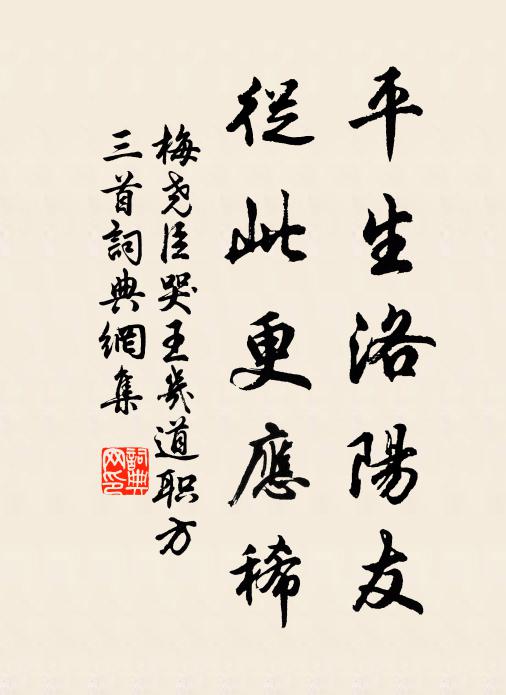 平生洛陽友
從此更應稀
梅堯臣哭王幾道职方
三首詞典網集
詞典网印